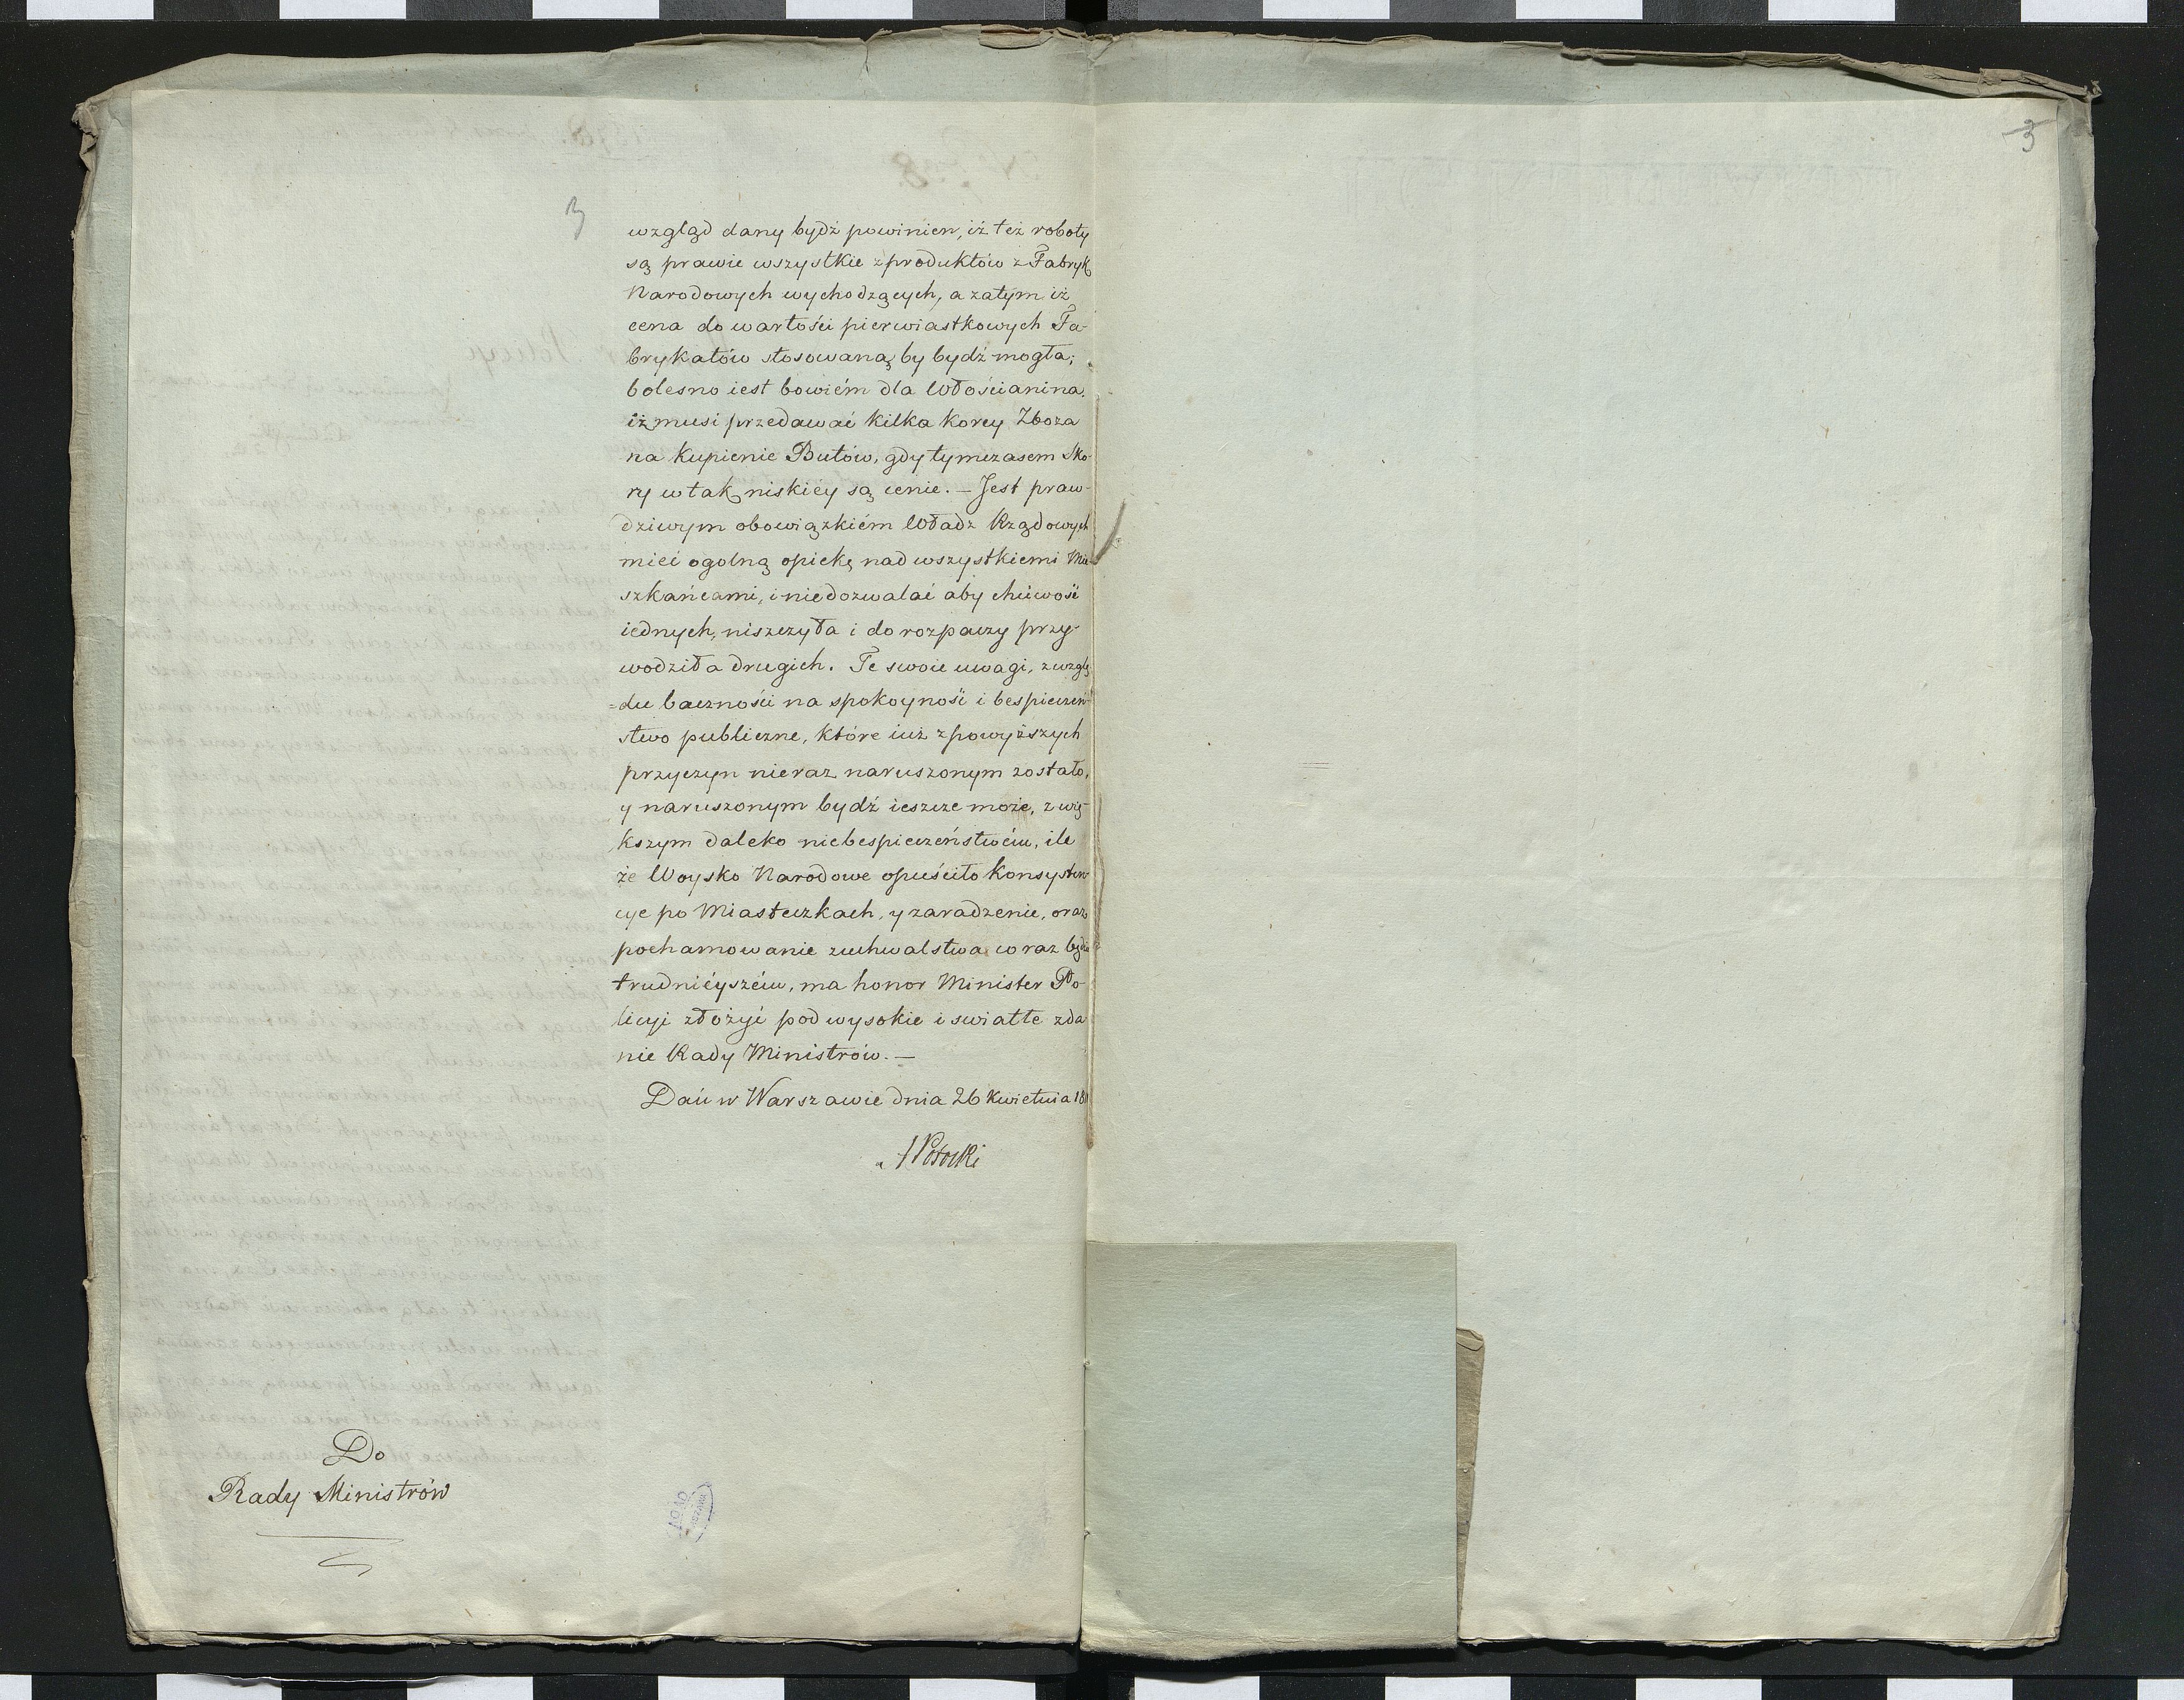 3
3
wzgląd dany bydź powinien, iż też roboty
są prawie wszystkie z produktów z Fabryk
Narodowych wychodzących, a zatym iż
cena do wartości pierwiastkowych Fa-
brykatów stosowaną by bydź mogła;
bolesno iest bowiém dla Włościanina,
iż musi przedawać kilka korcy Zboża
na kupienie Butów, gdy tymczasem Sko-
ry w tak niskiéy są cenie. — Jest praw-
dziwym obowiązkiém Władz Rządowych
mieć ogolną opiekę nad wszystkiemi Mie-
szkańcami, i niedozwalać aby chciwość
iednych, niszczyła i do rozpaczy przy-
wodziła drugich. Te swoie uwagi, z wzglę
=du baczności na spokoyność i bespieczeń-
stwo publiczne, które iuż z powyższych
przyczyn nieraz naruszonym zostało,
y naruszonym bydź ieszcze może, z wię-
kszym daleko niebespieczeństwém, ile
że Woysko Narodowe opuściło Konsysten
cye po Miasteczkach, y zaradzenie, oraz
pochamowanie zuchwalstwa coraz będzie
trudniéyszém, ma honor Minister Po-
licyi złożyć pod wysokie i swiatłe zda
nie Rady Ministrów. —
Dań w Warszawie dnia 26 Kwietnia 181
Potocki
Do
Rady Ministrów